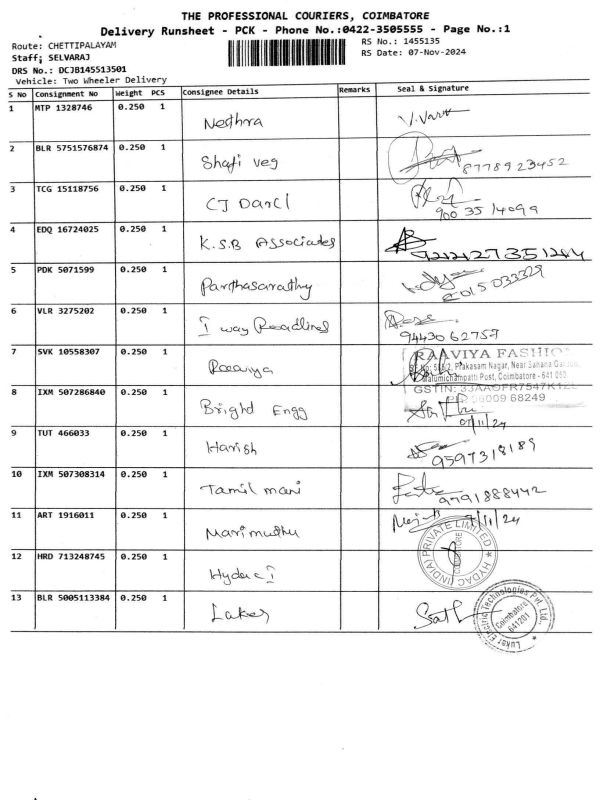 THE PROFESSIONAL COURIERS, COIMBATORE
Delivery Runsheet - PCK - Phone No.:0422-3505555 - Page No.:1
Route: CHETTIPALAYAM
RS No.: 1455135
Staff; SELVARAJ
RS Date: 07-Nov-2024
DRS No.: DCJB145513501
Vehicle: Two Wheeler Delivery
S No Consignment No Weight PCS Consignee Details Remarks Seal & Signature
1 MTP 1328746 0.250 1 Nethra
2 BLR 5751576874 0.250 1 Shafi veg 8778923452
3 TCG 15118756 0.250 1 CJ Darcl 900 35 14099
4 EDQ 16724025 0.250 1 K.S.B Associates
5 PDK 5071599 0.250 1 Parthasarathy
6 VLR 3275202 0.250 1 I way Roadlines 94430 62757
7 SVK 10558307 0.250 1 Raaviya
RAAVIYA FASHIO
Prakasam Nagar, Near Sahana Garden,
Malumichampatti Post, Coimbatore - 641 050.
GSTIN: 33AAOFR7547K1
98009 68249
8 IXM 507286840 0.250 1 Bright Engg
07/11/24
9 TUT 466033 0.250 1 Harish 9597318189
10 IXM 507308314 0.250 1 Tamil mani 9791888442
11 ART 1916011 0.250 1 Marimuthu 7/11/24
12 HRD 713248745 0.250 1 Hydac I
HYDAC (INDIA) PRIVATE LIMITED
COIMBATORE
13 BLR 5005113384 0.250 1 Laker
Luker Electric Technologies Pvt. Ltd.
Coimbatore
641201